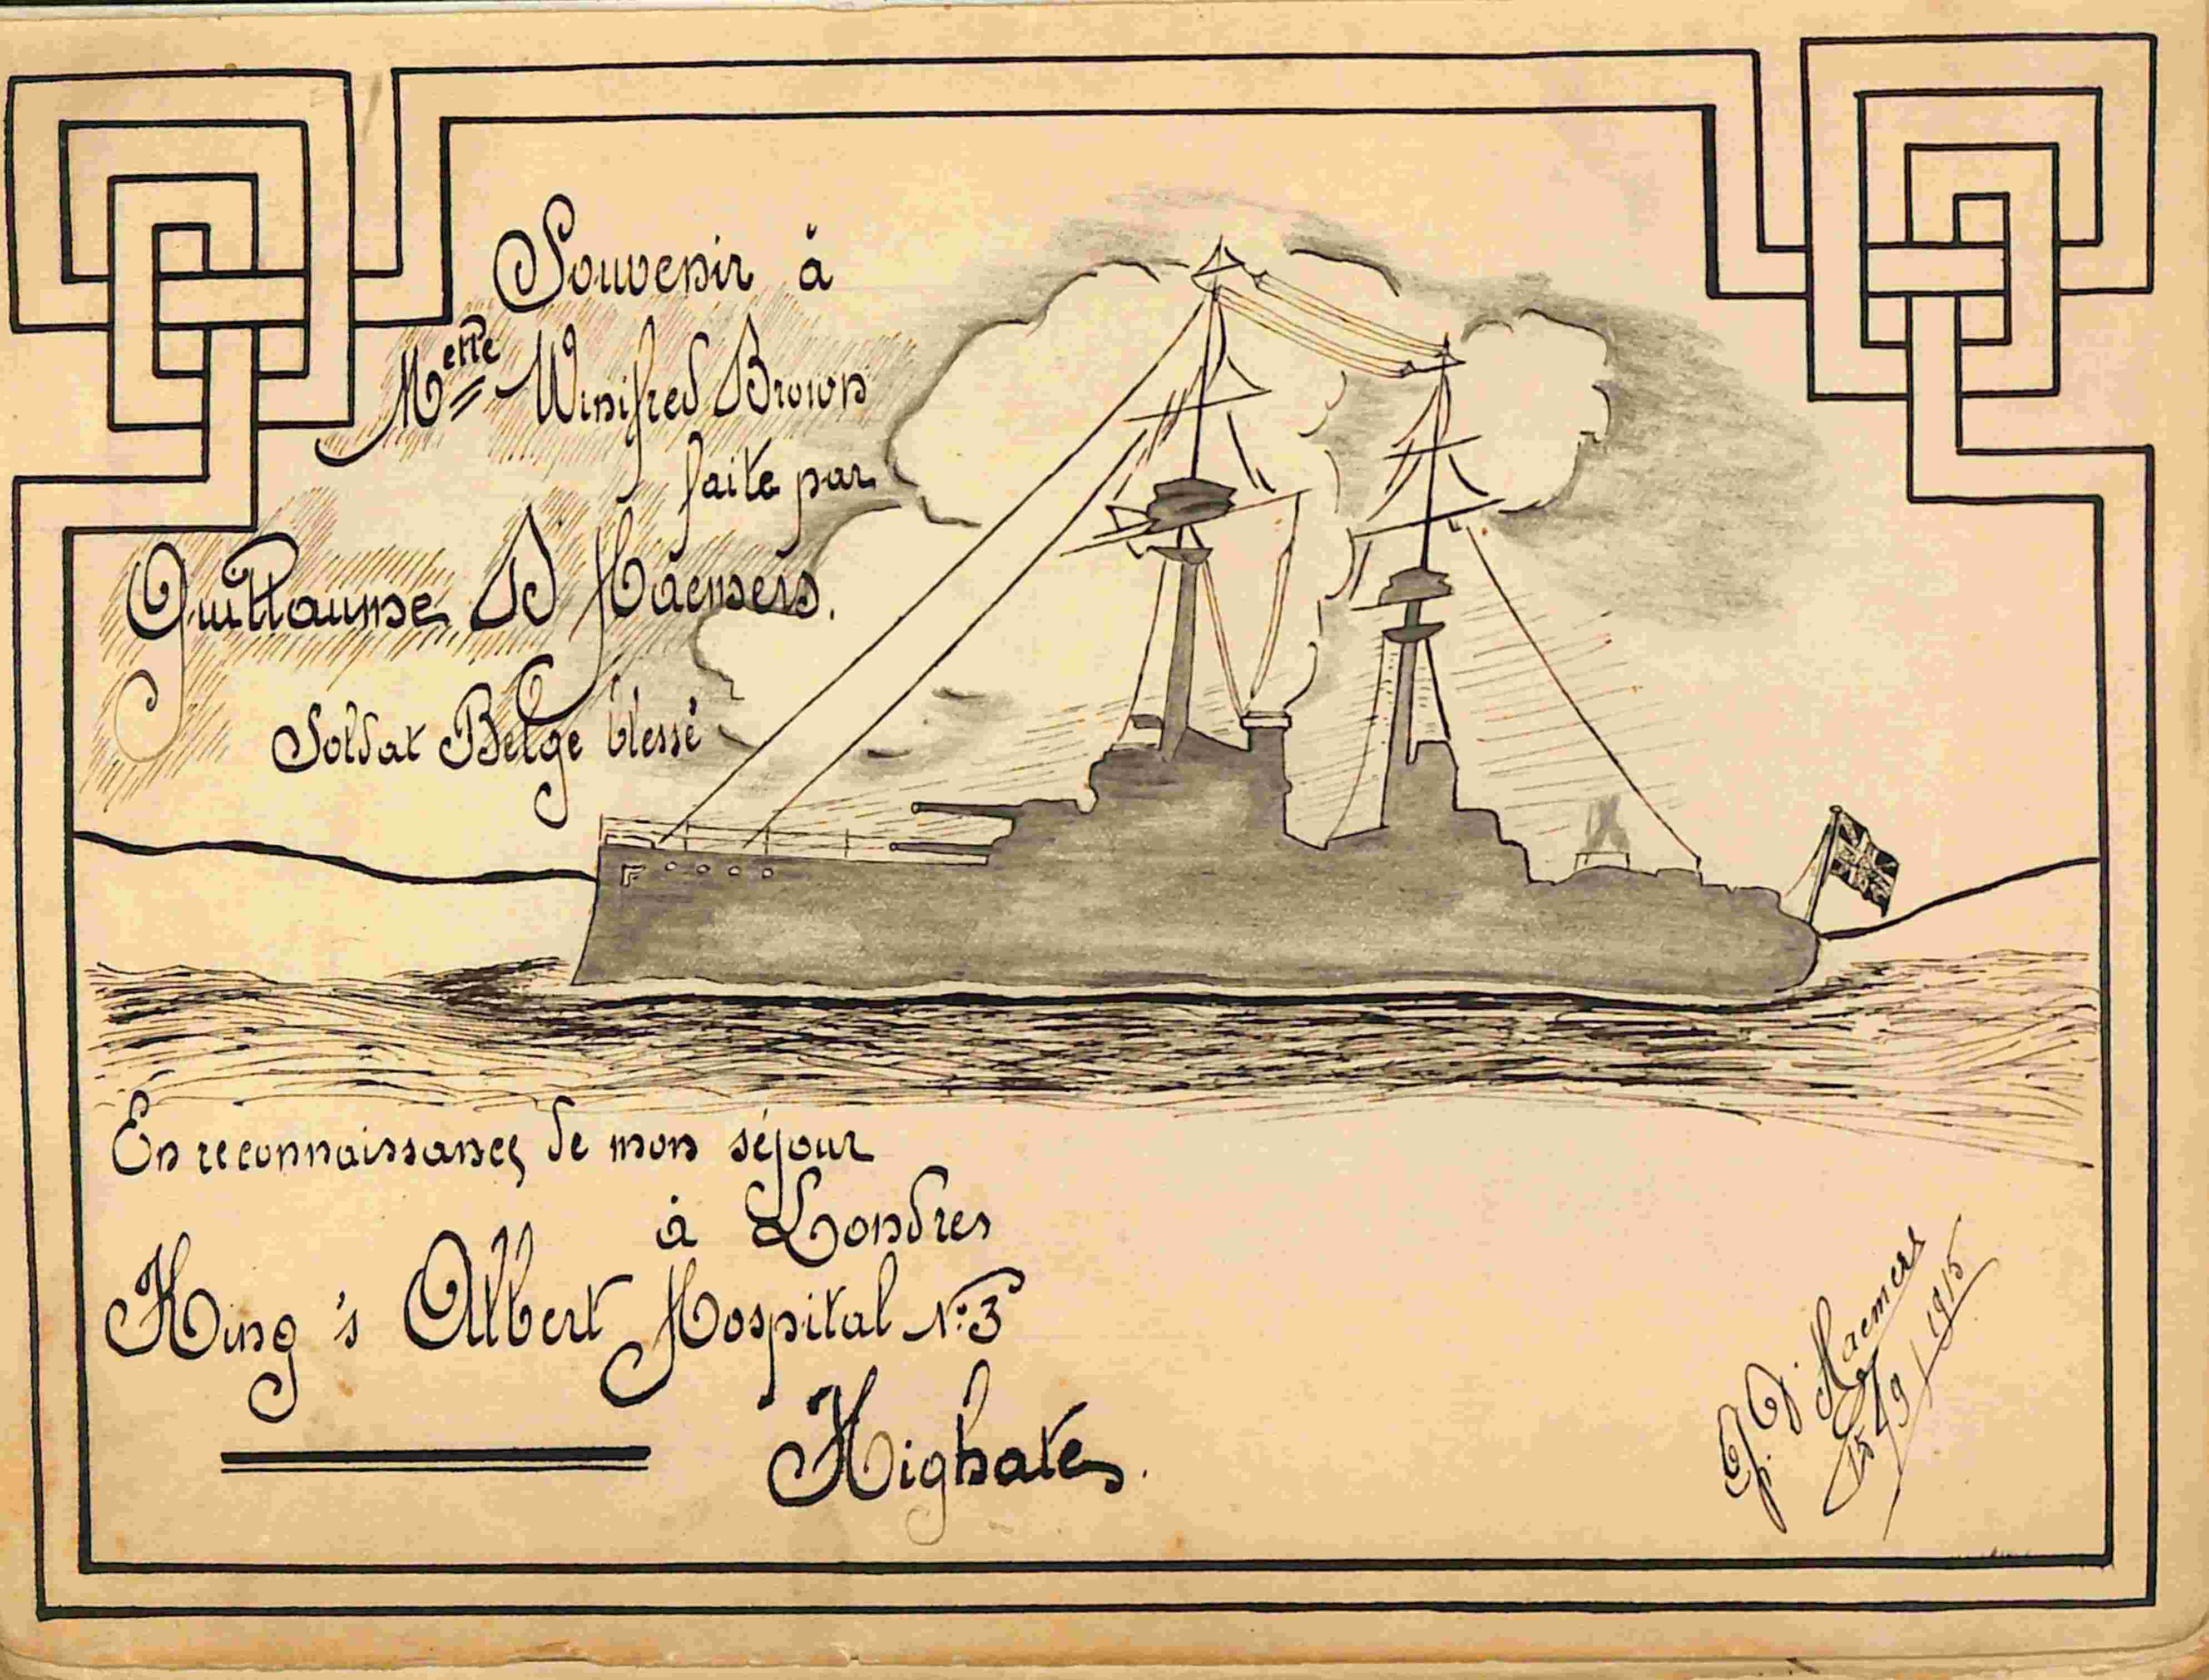 Souvenir à
Melle Winifred Brown
faite par
Guillaume D'Haemers.
Soldat Belge blessé
En reconnaissance de mon séjour
à Londres
King's Albert Hospital N:3
Highate.
G. D'Haemers
15/9/1915